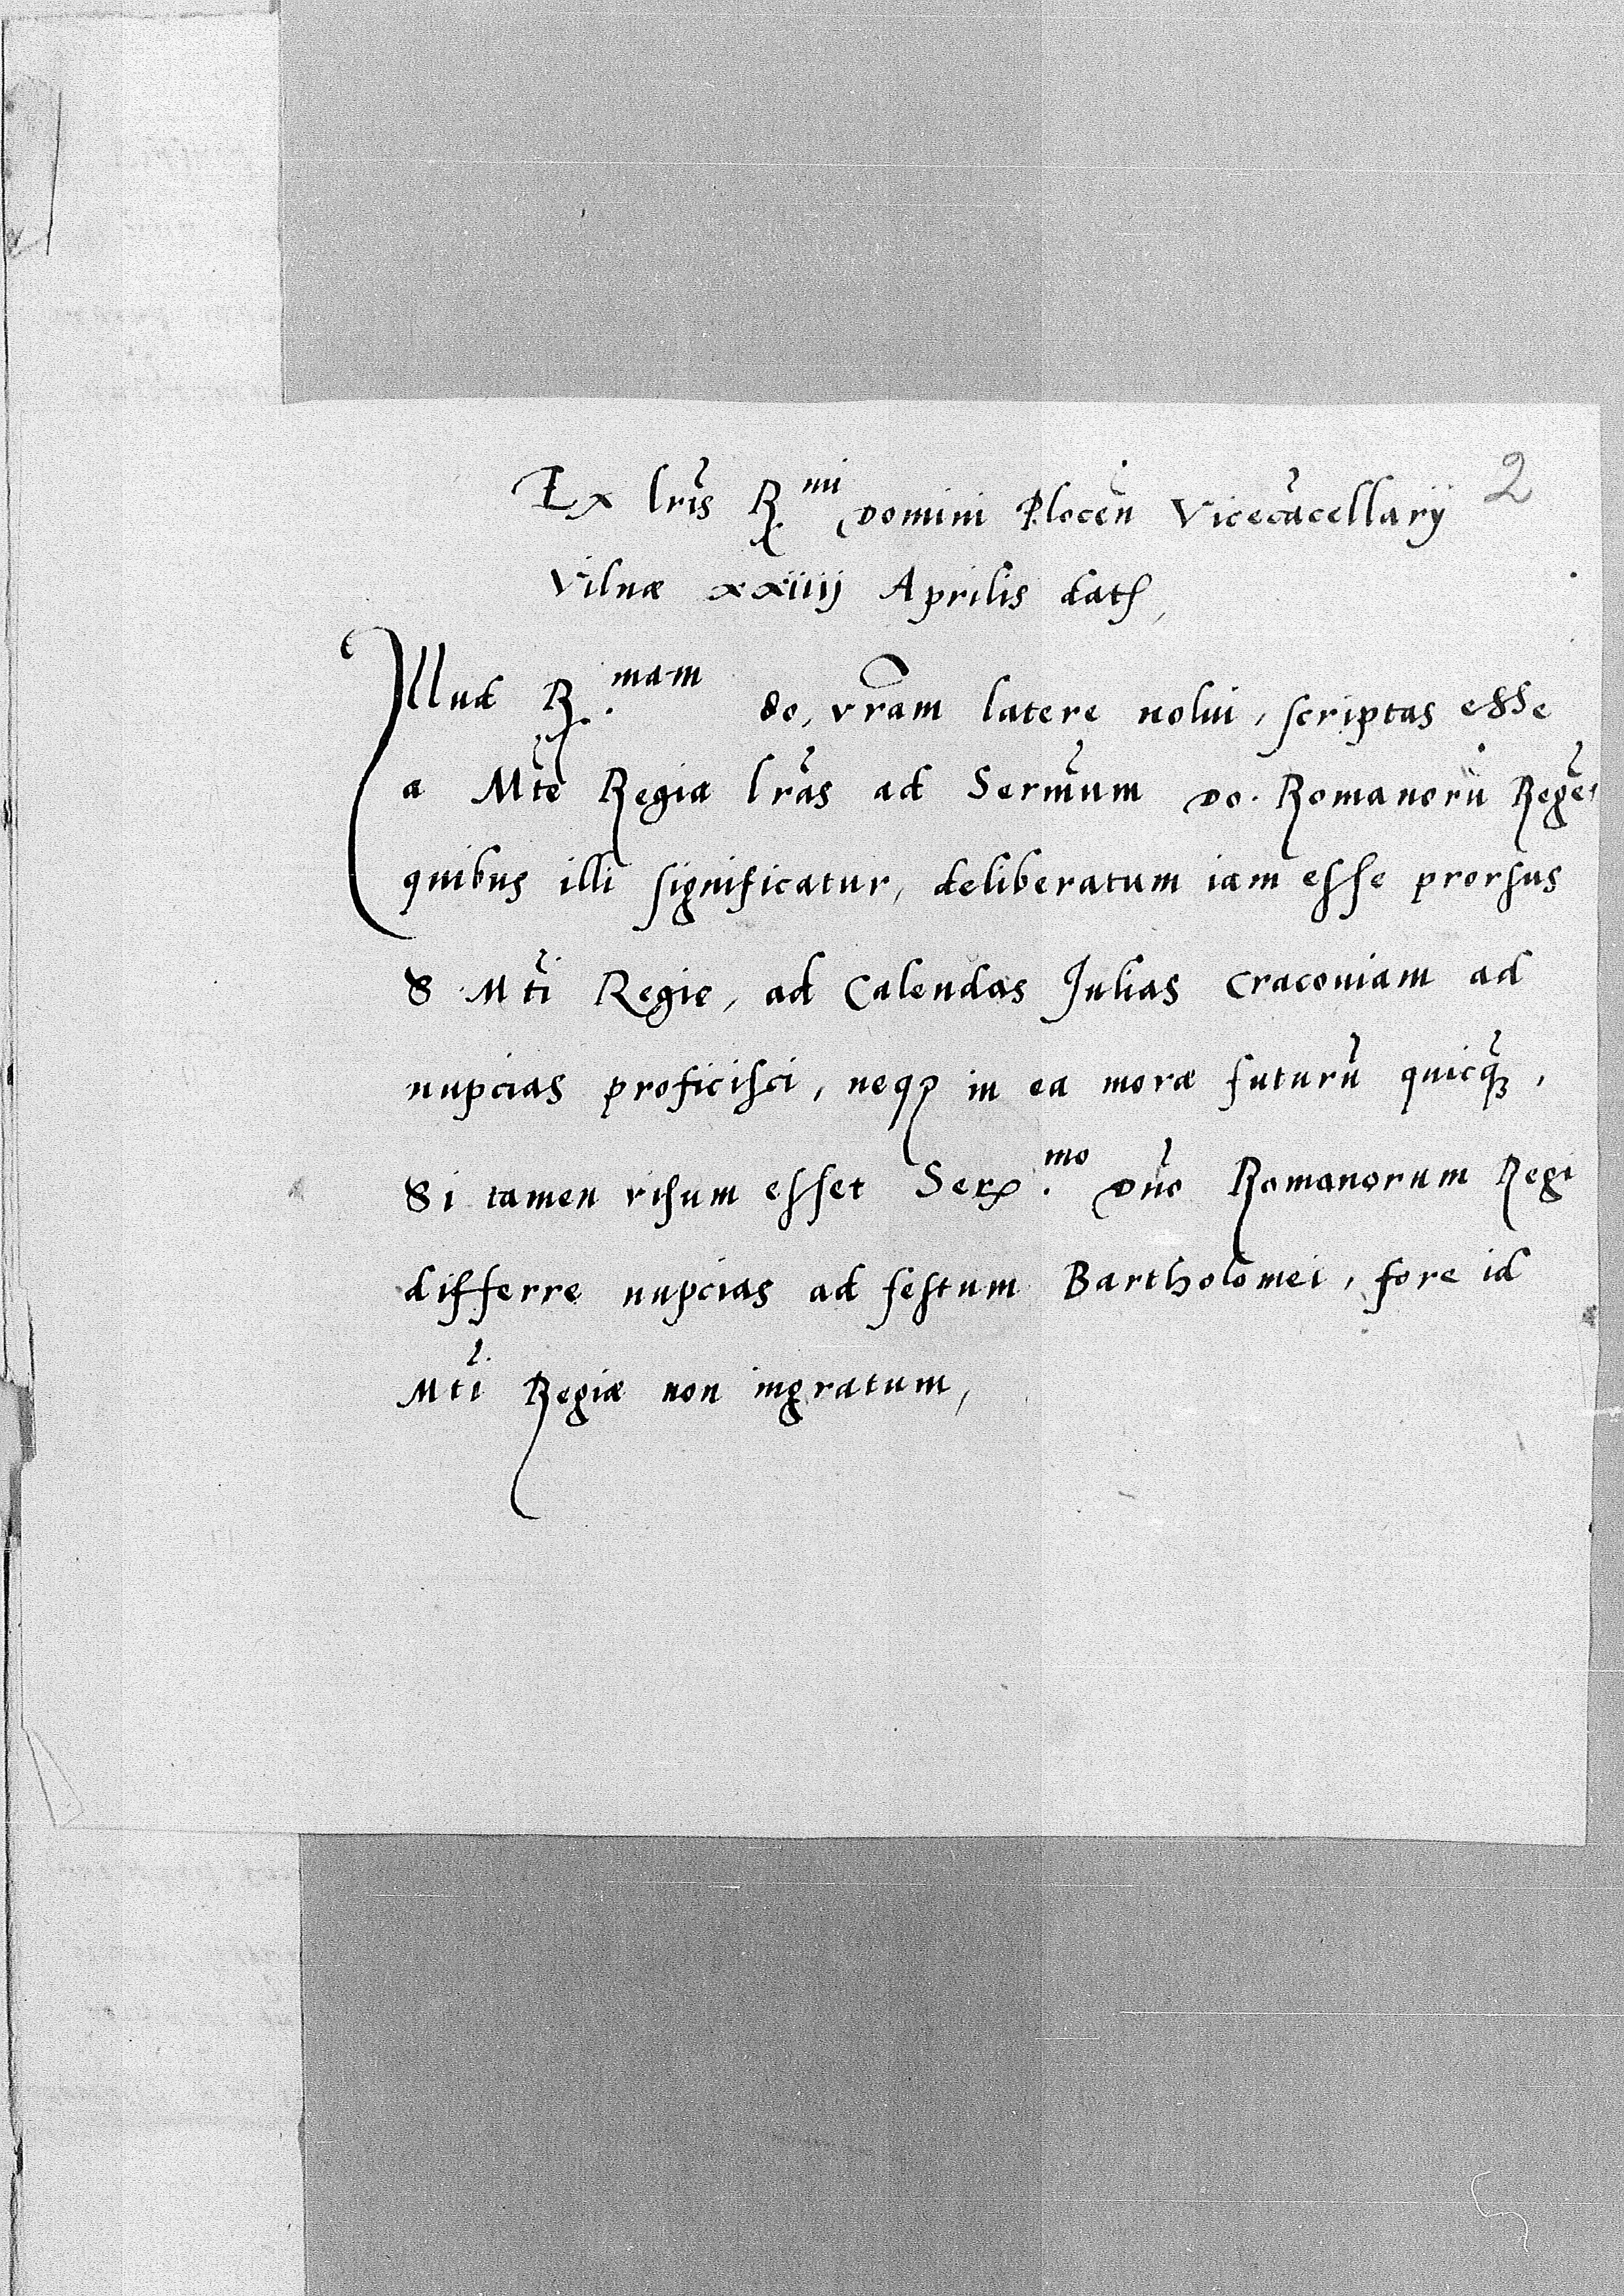 Ex lr̃is R.mi Domini Plocen̄ Vicecãcellarij 2
Vilnæ xxiiij Aprilis dat.
Illud R.mam do. vr̃am latere nolui, scriptas esse
a Mt̃e Regia lr̃as ad Sermũum Do. Romanorũ Regẽ,
quibus illi significatur, deliberatum iam esse prorsus
S Mt̃i Regie, ad Calendas Julias Cracouiam ad
nupcias proficisci, neq₃ in ea moræ futurũ quicq̃₃,
Si tamen visum esset Ser.mo Dño Romanorum Regi
differre nupcias ad festum Bartholomei, fore id
Mt̃i Regiæ non ingratum,